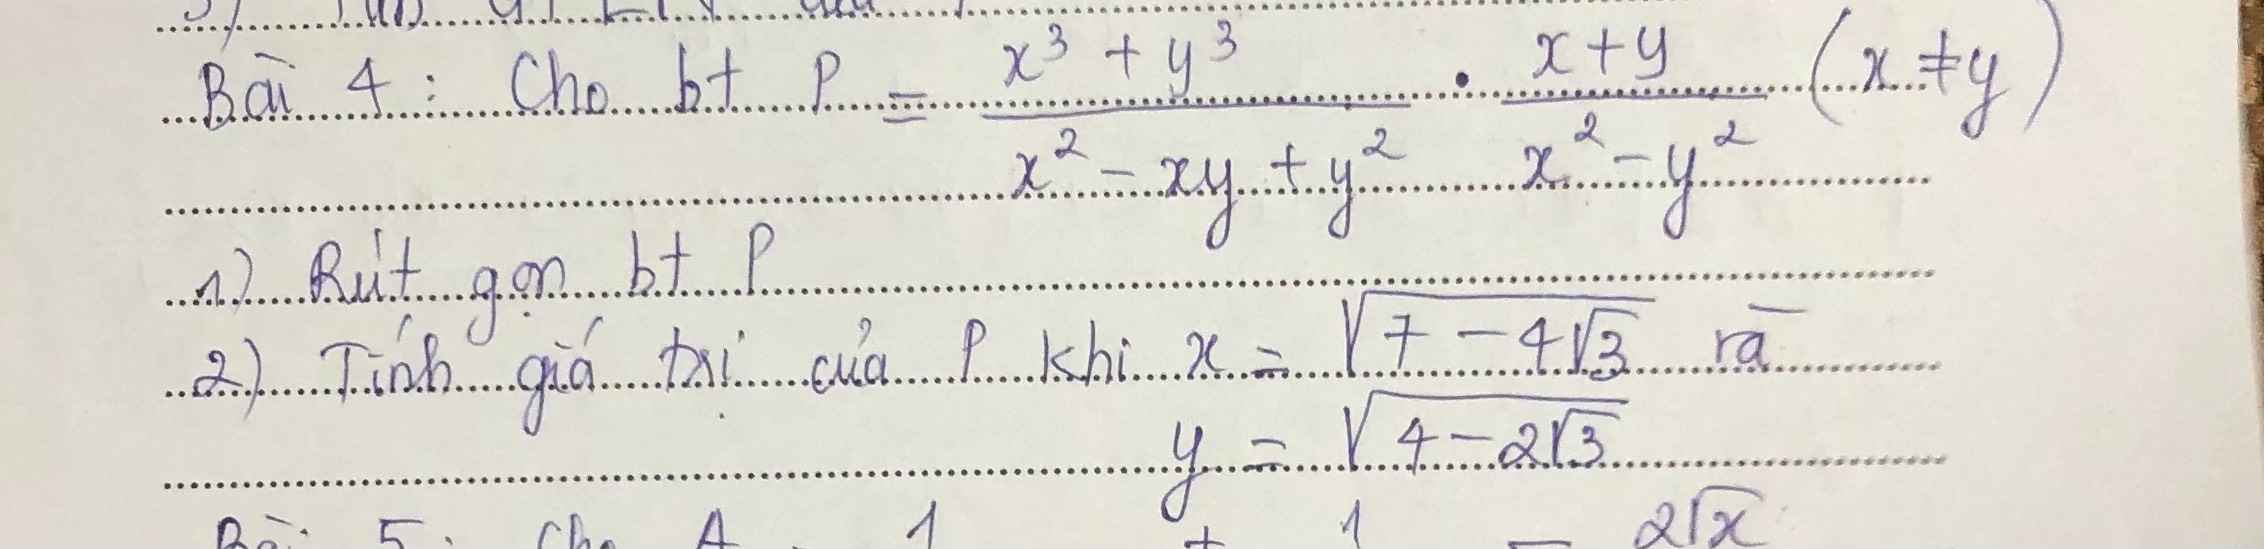 Bài 4 : Cho bt P = x³ + y³ / x² - xy + y² . x + y / x² - y² (x ≠ y)
1) Rút gọn bt P
2) Tính giá trị của P khi x = √(7 - 4√3) và
y = √(4 - 2√3)
Bài 5 : Cho A = 1 + 1 - 2√x